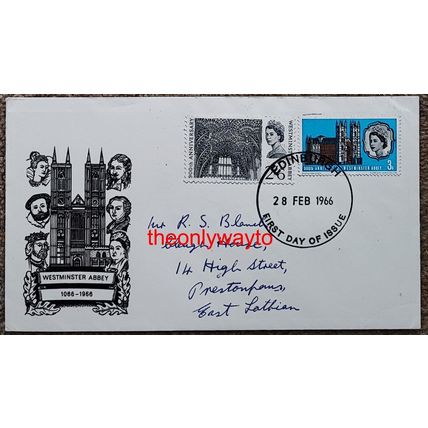 900th ANNIVERSARY
WESTMINSTER ABBEY
900th ANNIVERSARY WESTMINSTER ABBEY
3D
EDINBURGH
28 FEB 1966
FIRST DAY OF ISSUE
WESTMINSTER ABBEY
1066-1966
R. S.
theonlywayto
House,
14 High Street,
Prestonpans,
East Lothian